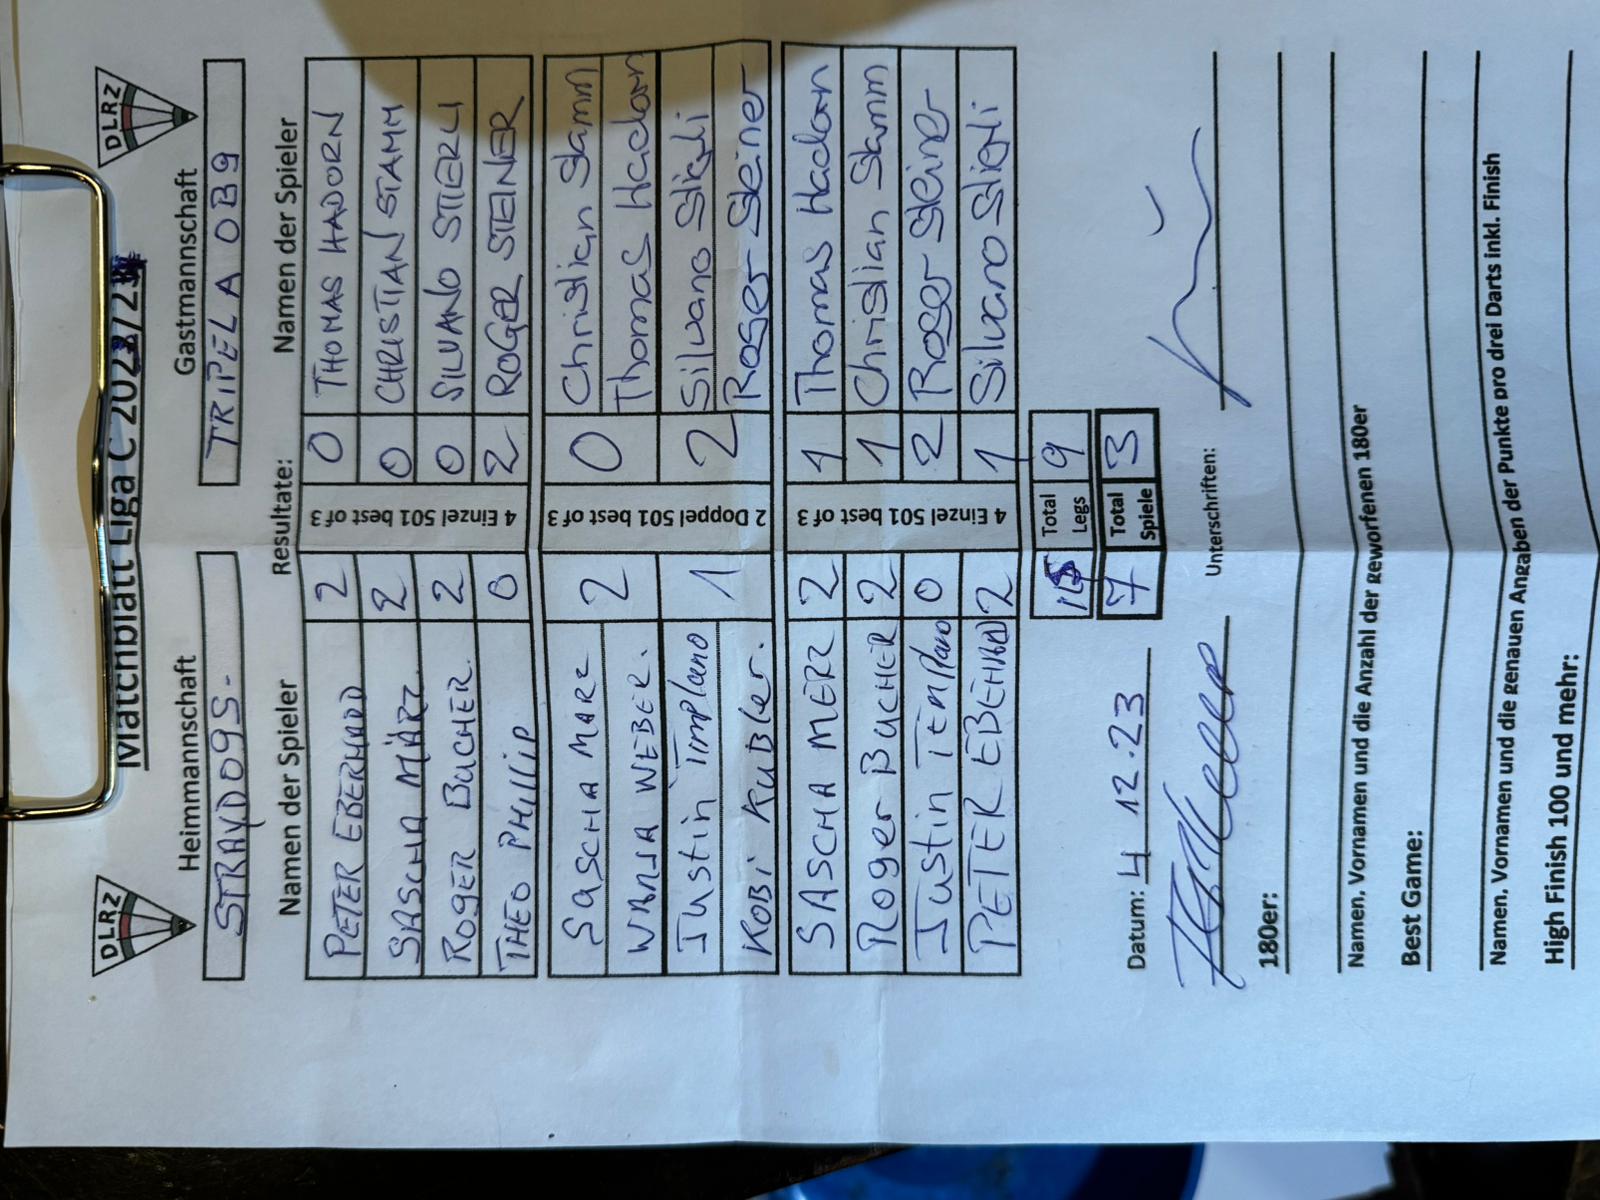 DLRZ
DLRZ
Matchblatt Liga C 2023/24
Heimmannschaft Gastmannschaft
STRAYDOGS- TRiPEL A OB9
Namen der Spieler Resultate: Namen der Spieler
PETER EBERHARD 2 0 THOMAS HADORN
SASCHA MÄRZ 2 0 CHRISTIAN STAMM
ROGER BUCHER 2 0 SILVANO STIERLI
THEO PHILLIP 0 2 ROGER STEINER
4 Einzel 501 best of 3
SASCHA MARZ 2 0 Christian Stamm
WANJA WEBER. Thomas Hadorn
Justin Templano 1 2 Silvano Stierli
KOBI KUBLER. Roger Steiner
2 Doppel 501 best of 3
SASCHA MERZ 2 1 Thomas Hadorn
Roger BUCHER 2 1 Christian Stamm
Justin TEMPlano 0 2 Roger Steiner
PETER EBEHRARD 2 1 Silvano Stierli
4 Einzel 501 best of 3
15 Total Legs 9
7 Total Spiele 3
Datum: 4 12.23 Unterschriften:
180er:
Namen, Vornamen und die Anzahl der geworfenen 180er
Best Game:
Namen, Vornamen und die genauen Angaben der Punkte pro drei Darts inkl. Finish
High Finish 100 und mehr: